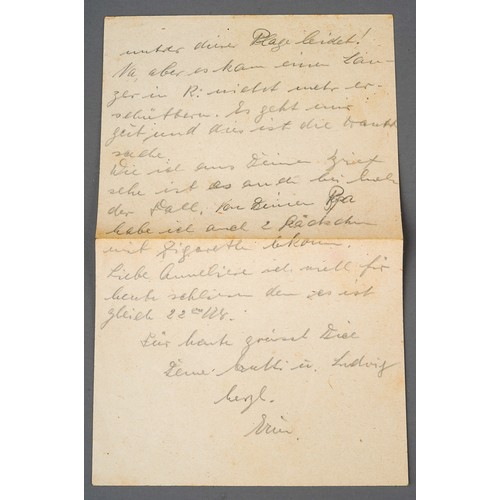 unter dieser Plage leidet!
Na, aber es kam einen Lan-
zer in R. nicht mehr er-
schüttern. Es geht mir
gut und dies ist die Haupt
sache.
Wie ich aus Deinem Brief
sehe ist es auch bei
der Fall. Von Deinem Pa
habe ich auch 2 Päckchen
mit Zigarett bekom.
Liebe Anneliese ich will für
heute schliesen den es ist
gleich 22 Uhr.
Für heute grüsst Dich
Deine Mutti u. Ludwig
herzl.